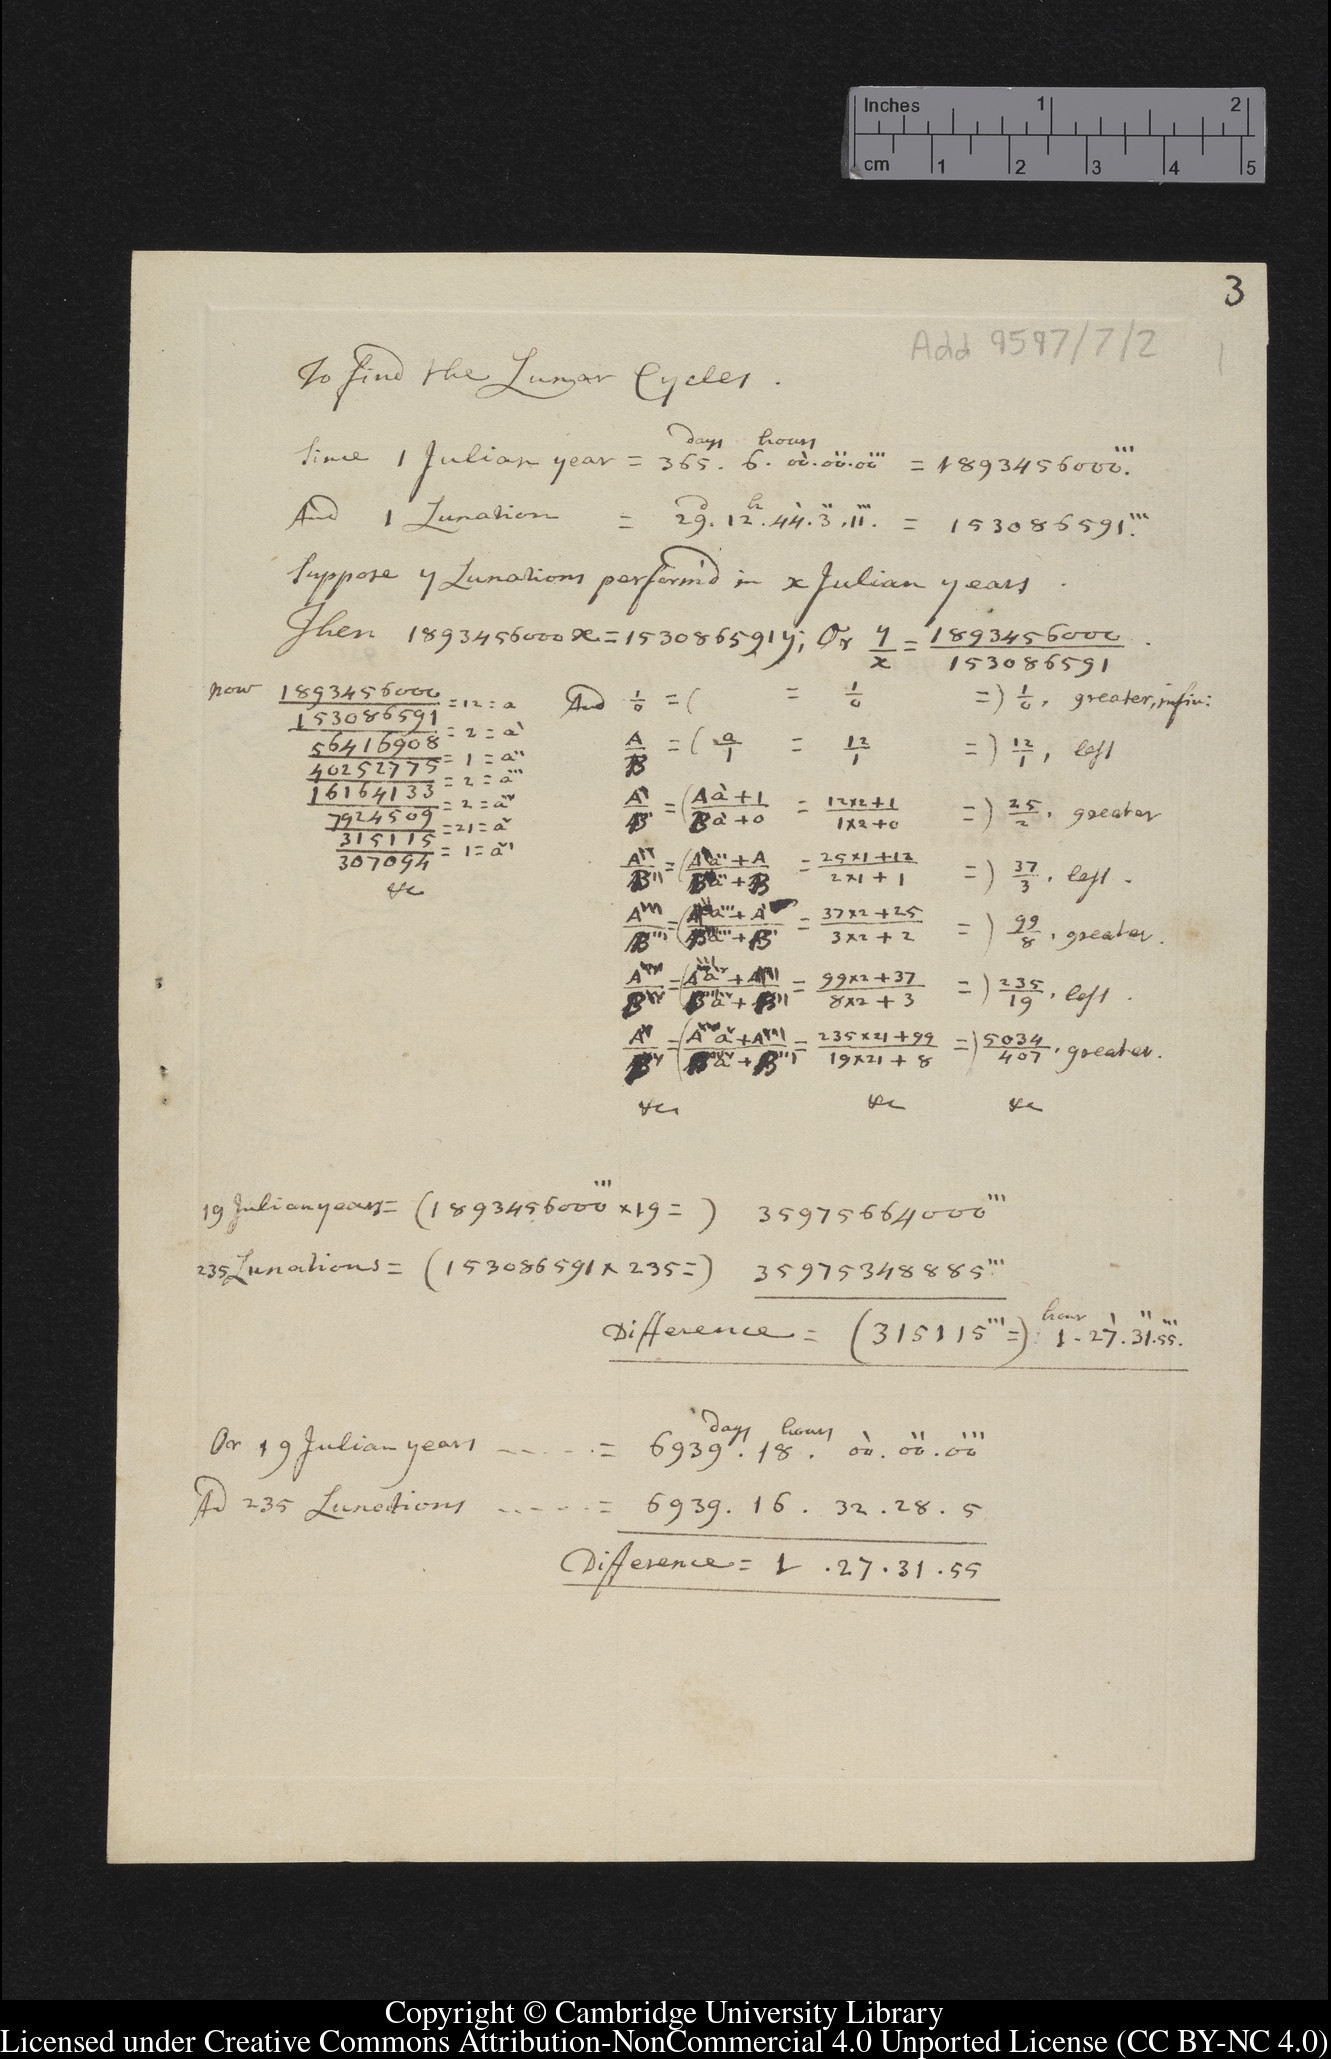 Inches 1 2
cm 1 2 3 4 5
3
Add 9597/7/2
1
To find the Lunar Cycles.
days hours
Since 1 Julian year = 365. 6. 00`.00``.00``` = 1893456000```.
d h
And 1 Lunation = 29. 12. 44`. 3``. 11```. = 153086591```.
Suppose y Lunations perform'd in x Julian years.
Then 1893456000x = 153086591y; Or y/x = 1893456000/153086591.
now 1893456000/153086591 = 12 = a
153086591/56416908 = 2 = a`
56416908/40252775 = 1 = a``
40252775/16164133 = 2 = a```
16164133/7924509 = 2 = a^iv
7924509/315115 = 21 = a^v
315115/307094 = 1 = a^vi
&c
And 1/0 = ( = 1/0 =) 1/0, greater, infin:
A/B = ( a/1 = 12/1 =) 12/1, less
A`/B` = ( Aa`+1/Ba`+0 = 12×2+1/1×2+0 =) 25/2, greater
A``/B`` = ( A`a``+A/B`a``+B = 25×1+12/2×1+1 =) 37/3, less.
A```/B``` = ( A``a```+A`/B``a```+B` = 37×2+25/3×2+2 =) 99/8, greater.
A^iv/B^iv = ( A```a^iv+A``/B```a^iv+B`` = 99×2+37/8×2+3 =) 235/19, less.
A^v/B^v = ( A^iv a^v+A```/B^iv a^v+B``` = 235×21+99/19×21+8 =) 5034/407, greater.
&c &c &c
19 Julian years = (1893456000``` ×19 =) 35975664000```
235 Lunations = (153086591 × 235 =) 35975348885```
hour
Difference = (315115``` =) 1. 27`. 31``. 55```.
days hours
Or 19 Julian years - - - - - = 6939. 18. 00`. 00``. 00```
Ad 235 Lunations - - - - - = 6939. 16. 32. 28. 5
Difference = 1 . 27. 31. 55
Copyright © Cambridge University Library
Licensed under Creative Commons Attribution-NonCommercial 4.0 Unported License (CC BY-NC 4.0)